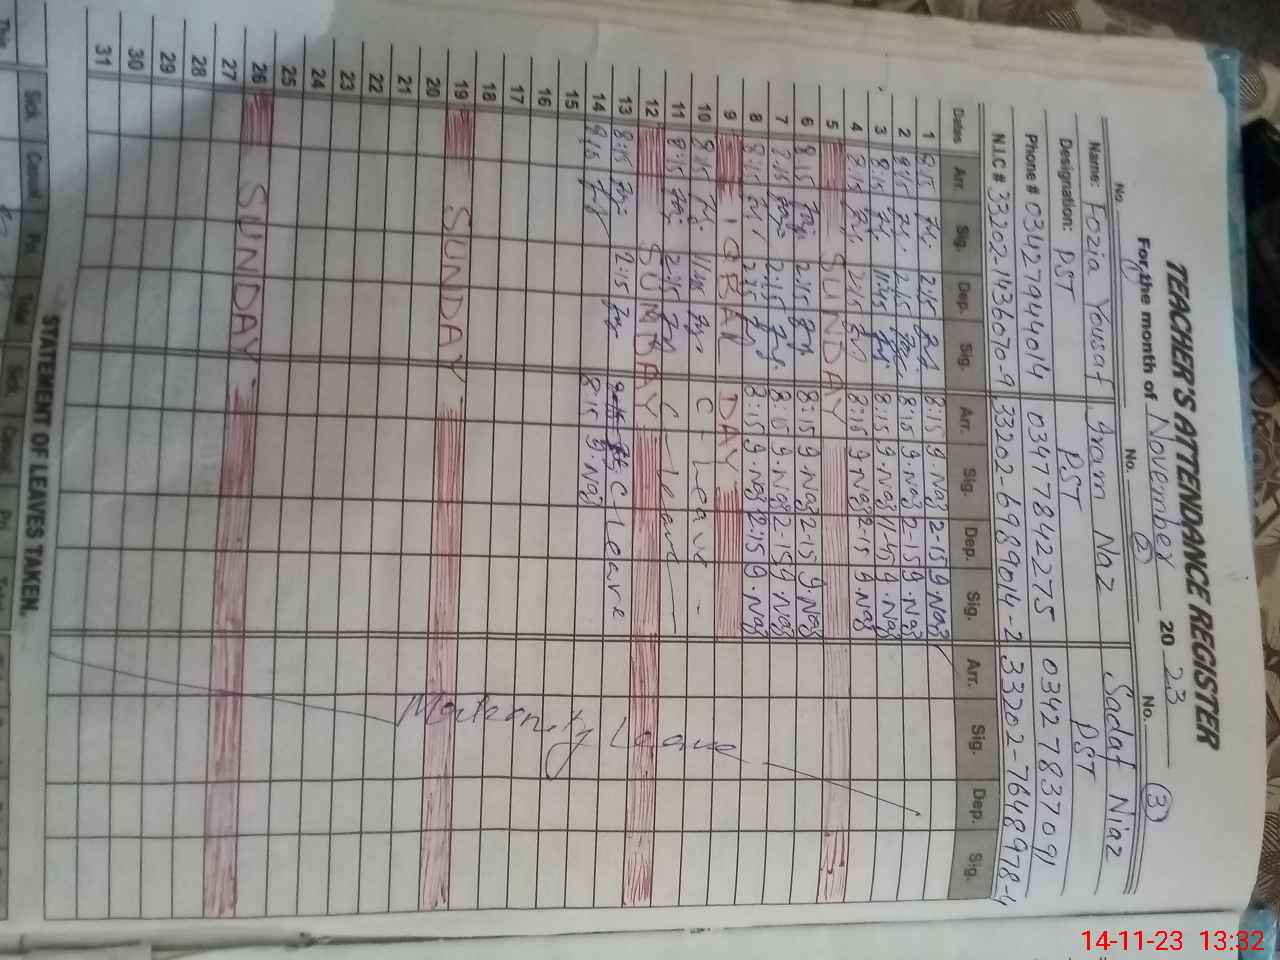 TEACHER'S ATTENDANCE REGISTER
For the month of November 2023
No. No. (2) No. (3)
Name: Fozia Yousaf Iram Naz Sadaf Niaz
Designation: PST PST PST
Phone # 03427944014 03477842275 03427837091
N.I.C # 33202-1436070-9 33202-6989904-2 33202-7648978-4
Dates Arr. Sig. Dep. Sig. Arr. Sig. Dep. Sig. Arr. Sig. Dep. Sig.
1 8:15 2:15 8:15 9.Naz 2-15 9.Naz
2 8:15 2:15 8:15 9.Naz 2-15 9.Naz
3 8:15 11:45 8:15 9.Naz 11-45 9.Naz
4 8:15 2:15 8:15 9.Naz 2-15 9.Naz
5 SUNDAY
6 8:15 2:15 8:15 9.Naz 2-15 9.Naz
7 8:15 2:15 8:15 9.Naz 2-15 9.Naz
8 8:15 2:15 8:15 9.Naz 2:15 9.Naz
9 IQBAL DAY
10 8:15 C-Leave
11 8:15 2:15 C-Leave
12 SUNDAY
13 8:15 2:15 C-Leave
14 8:15 8:15 9.Naz
15
16
17
18
19 SUNDAY
20
21
22
23
24
25
26 SUNDAY
27
28
29
30
31
Maternity Leave
STATEMENT OF LEAVES TAKEN.
Sick Casual Pri. Total Sick Casual Pri Total
This
14-11-23 13:32